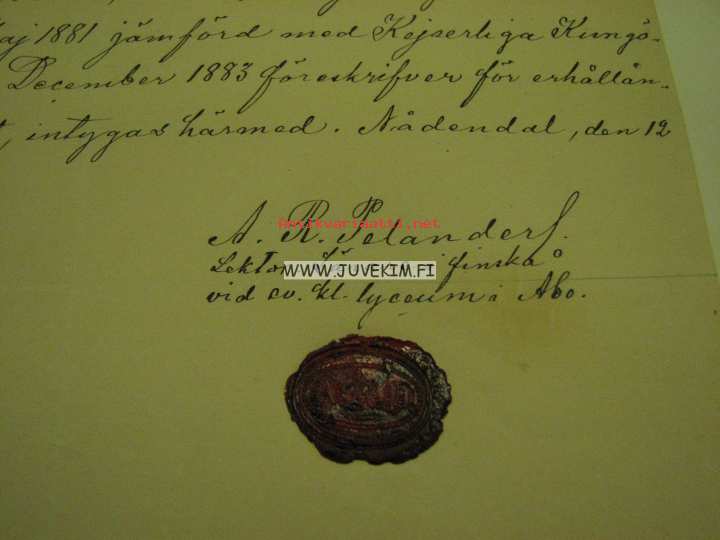 aj 1881 jämförd med Kejserliga Kungö-
December 1883 föreskrifver för erhållan-
t, intygas härmed. Nådendal, den 12
A. R. Pelander.
Antikvariaatti.net
Lektor finska
WWW.JUVEKIM.FI
vid sv. kl. lyceum i Åbo.